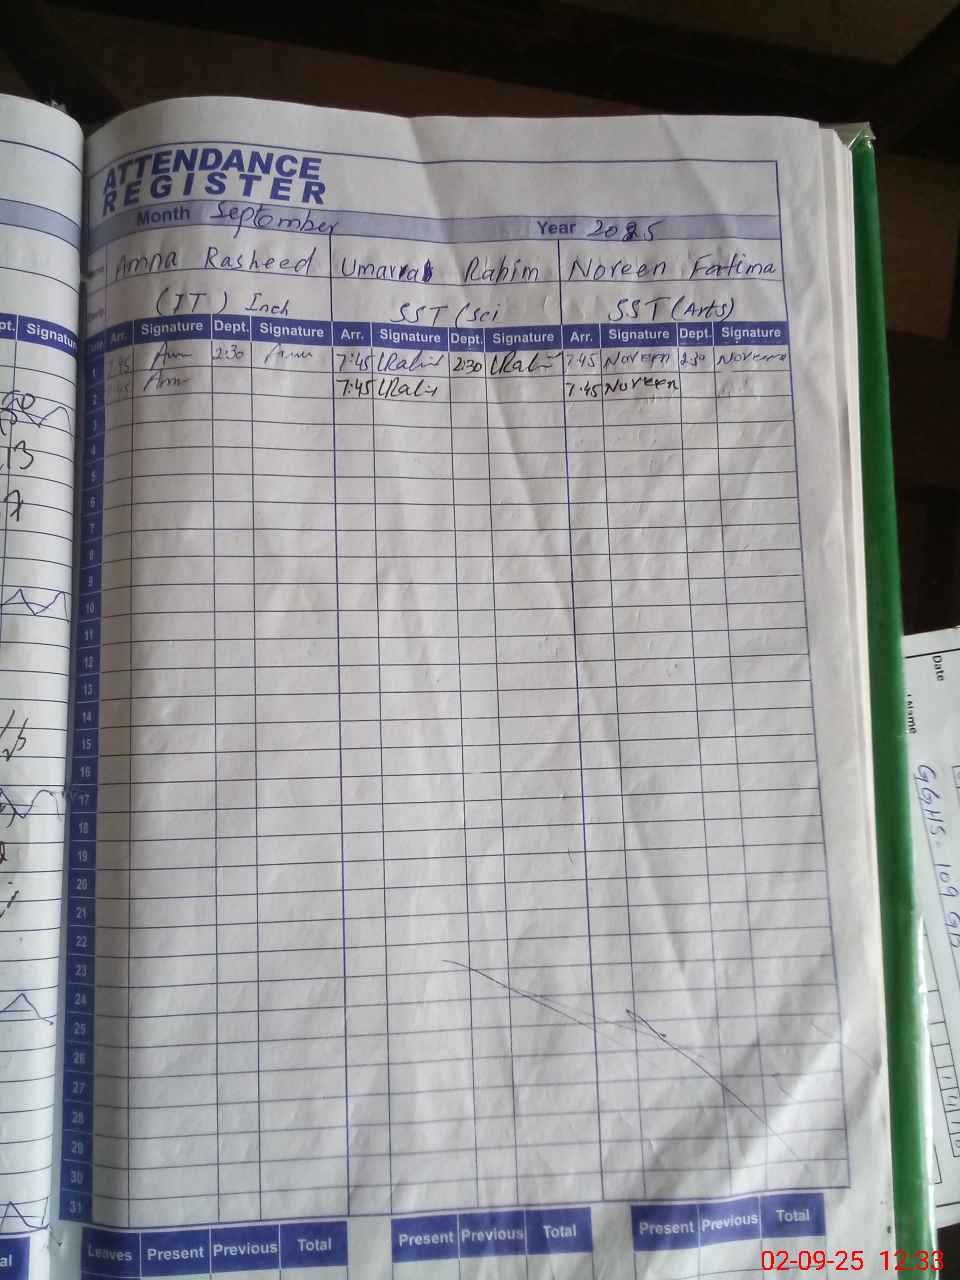 ATTENDANCE
REGISTER
Month September Year 2025
Amna Rasheed Rahim Noreen Fatima
(IT) Inch SST (Sci SST (Arts)
pt. Signature Arr. Signature Dept. Signature Arr. Signature Dept. Signature Arr. Signature Dept. Signature
1 7:45 2:30 7:45 2:30 7:45 Noreen 2:30 Noreen
2 7:45 7:45 7:45 Noreen
3
4
5
6
7
8
9
10
11
12
13
14
15
16
17
18
19
20
21
22
23
24
25
26
27
28
29
30
31
Leaves Present Previous Total Present Previous Total Present Previous Total
13
Date
Name
GGHS-109 GB
02-09-25 12:33